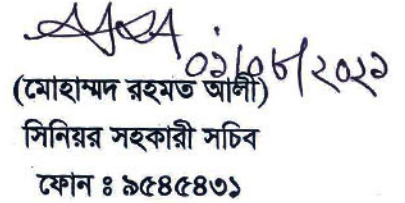 ০১/০৮/২০২১
(মোহাম্মদ রহমত আলী)
সিনিয়র সহকারী সচিব
ফোন ঃ ৯৫৪৫৪৩১